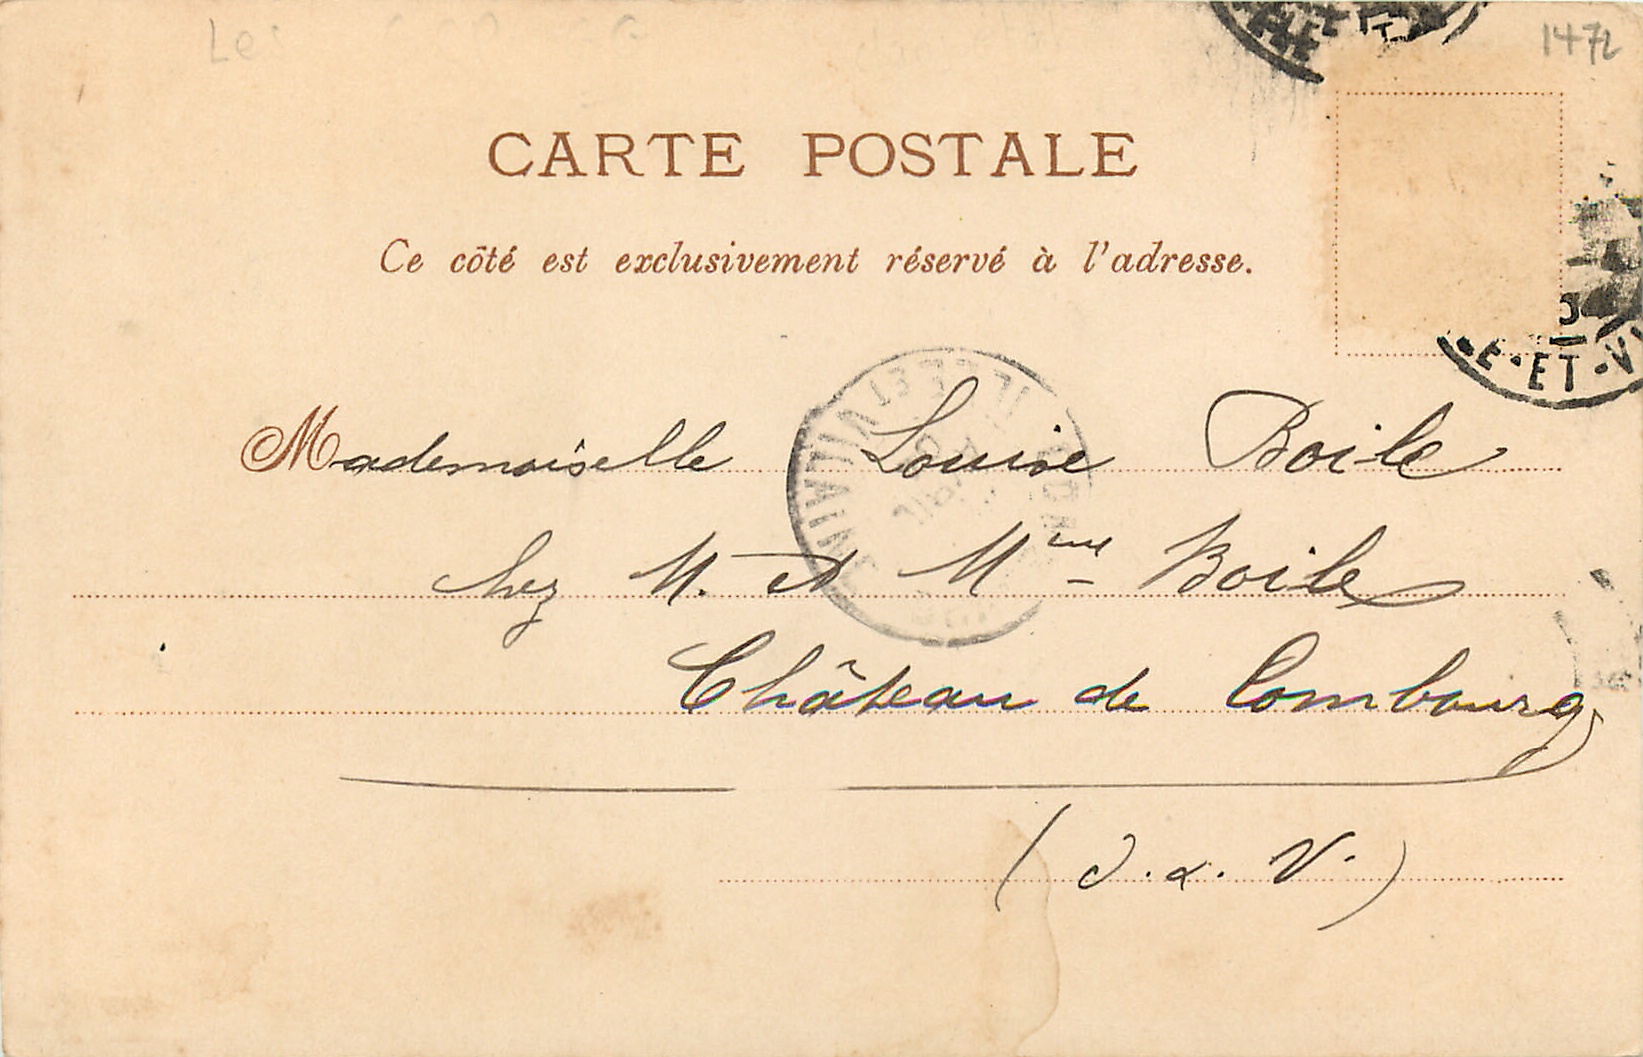 1472
CARTE POSTALE
Ce côté est exclusivement réservé à l'adresse.
E·ET·V
ILLE ET VILAINE
Mademoiselle Louise Boile
chez M. et Mme Boile
Château de Combourg
(I. & V.)